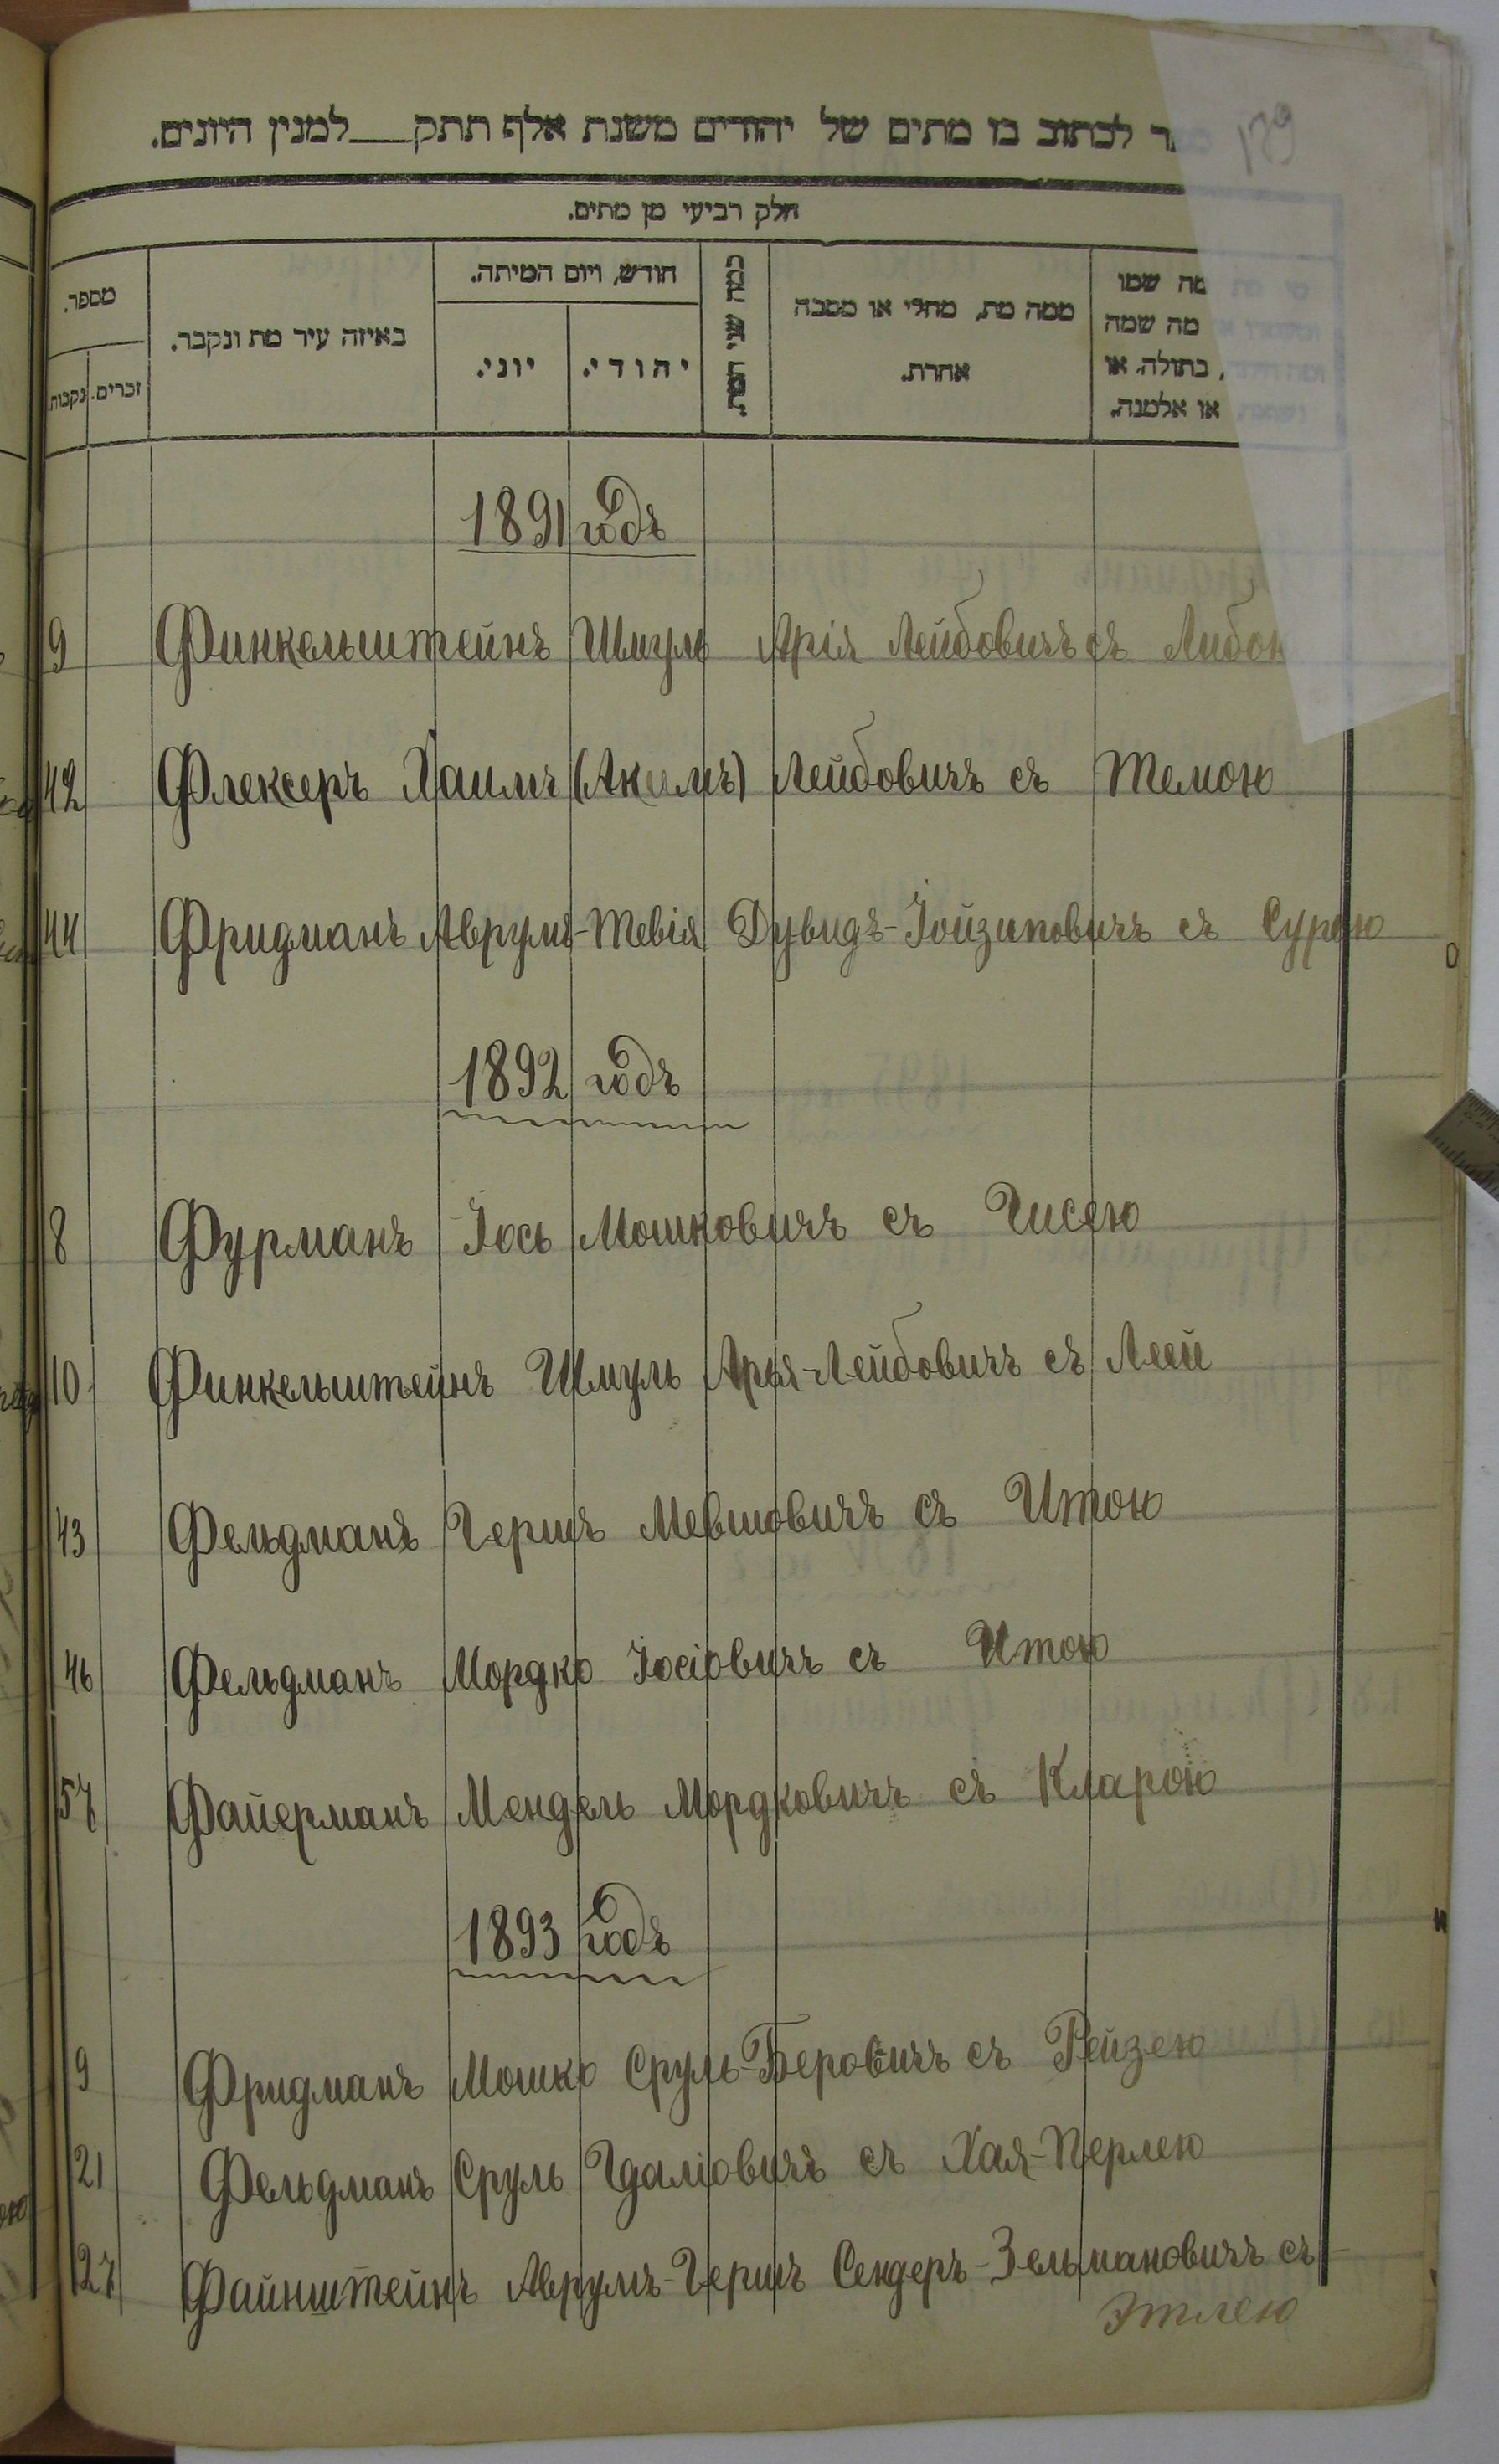 ר לכתוב בו מתים של יהודים משנת אלף תתק___למנין היונים.
חלק רביעי מן מתים.
מה שמו
מה שמה
בתולה, או
או אלמנה.
ממה מת, מחלי או מסבה
אחרת.
כמה שני המת.
חודש, ויום המיתה.
יהודי.
יוני.
באיזה עיר מת ונקבר.
מספר.
זכרים.
נקבות.
1891 годъ
9 Финкельштейнъ Шмуль Арія Лейбовичъ съ Либою
42 Флексеръ Хаимъ (Акимъ) Лейбовичъ съ Темою
44 Фридманъ Аврумъ-Тевія Дувидъ-Іойзиповичъ съ Сурою
1892 годъ
8 Фурманъ Іось Мошковичъ съ Гисею
10 Финкельштейнъ Шмуль Арья-Лейбовичъ съ Леей
43 Фельдманъ Гершъ Мевшовичъ съ Итою
46 Фельдманъ Мордко Іосіовичъ съ Итою
57 Файерманъ Мендель Мордковичъ съ Кларою
1893 годъ
9 Фридманъ Мошко Сруль-Беровичъ съ Рейзею
21 Фельдманъ Сруль Гдаліовичъ съ Хая-Перлею
27 Файнштейнъ Аврумъ-Гершъ Сендеръ-Зельмановичъ съ
Этлею